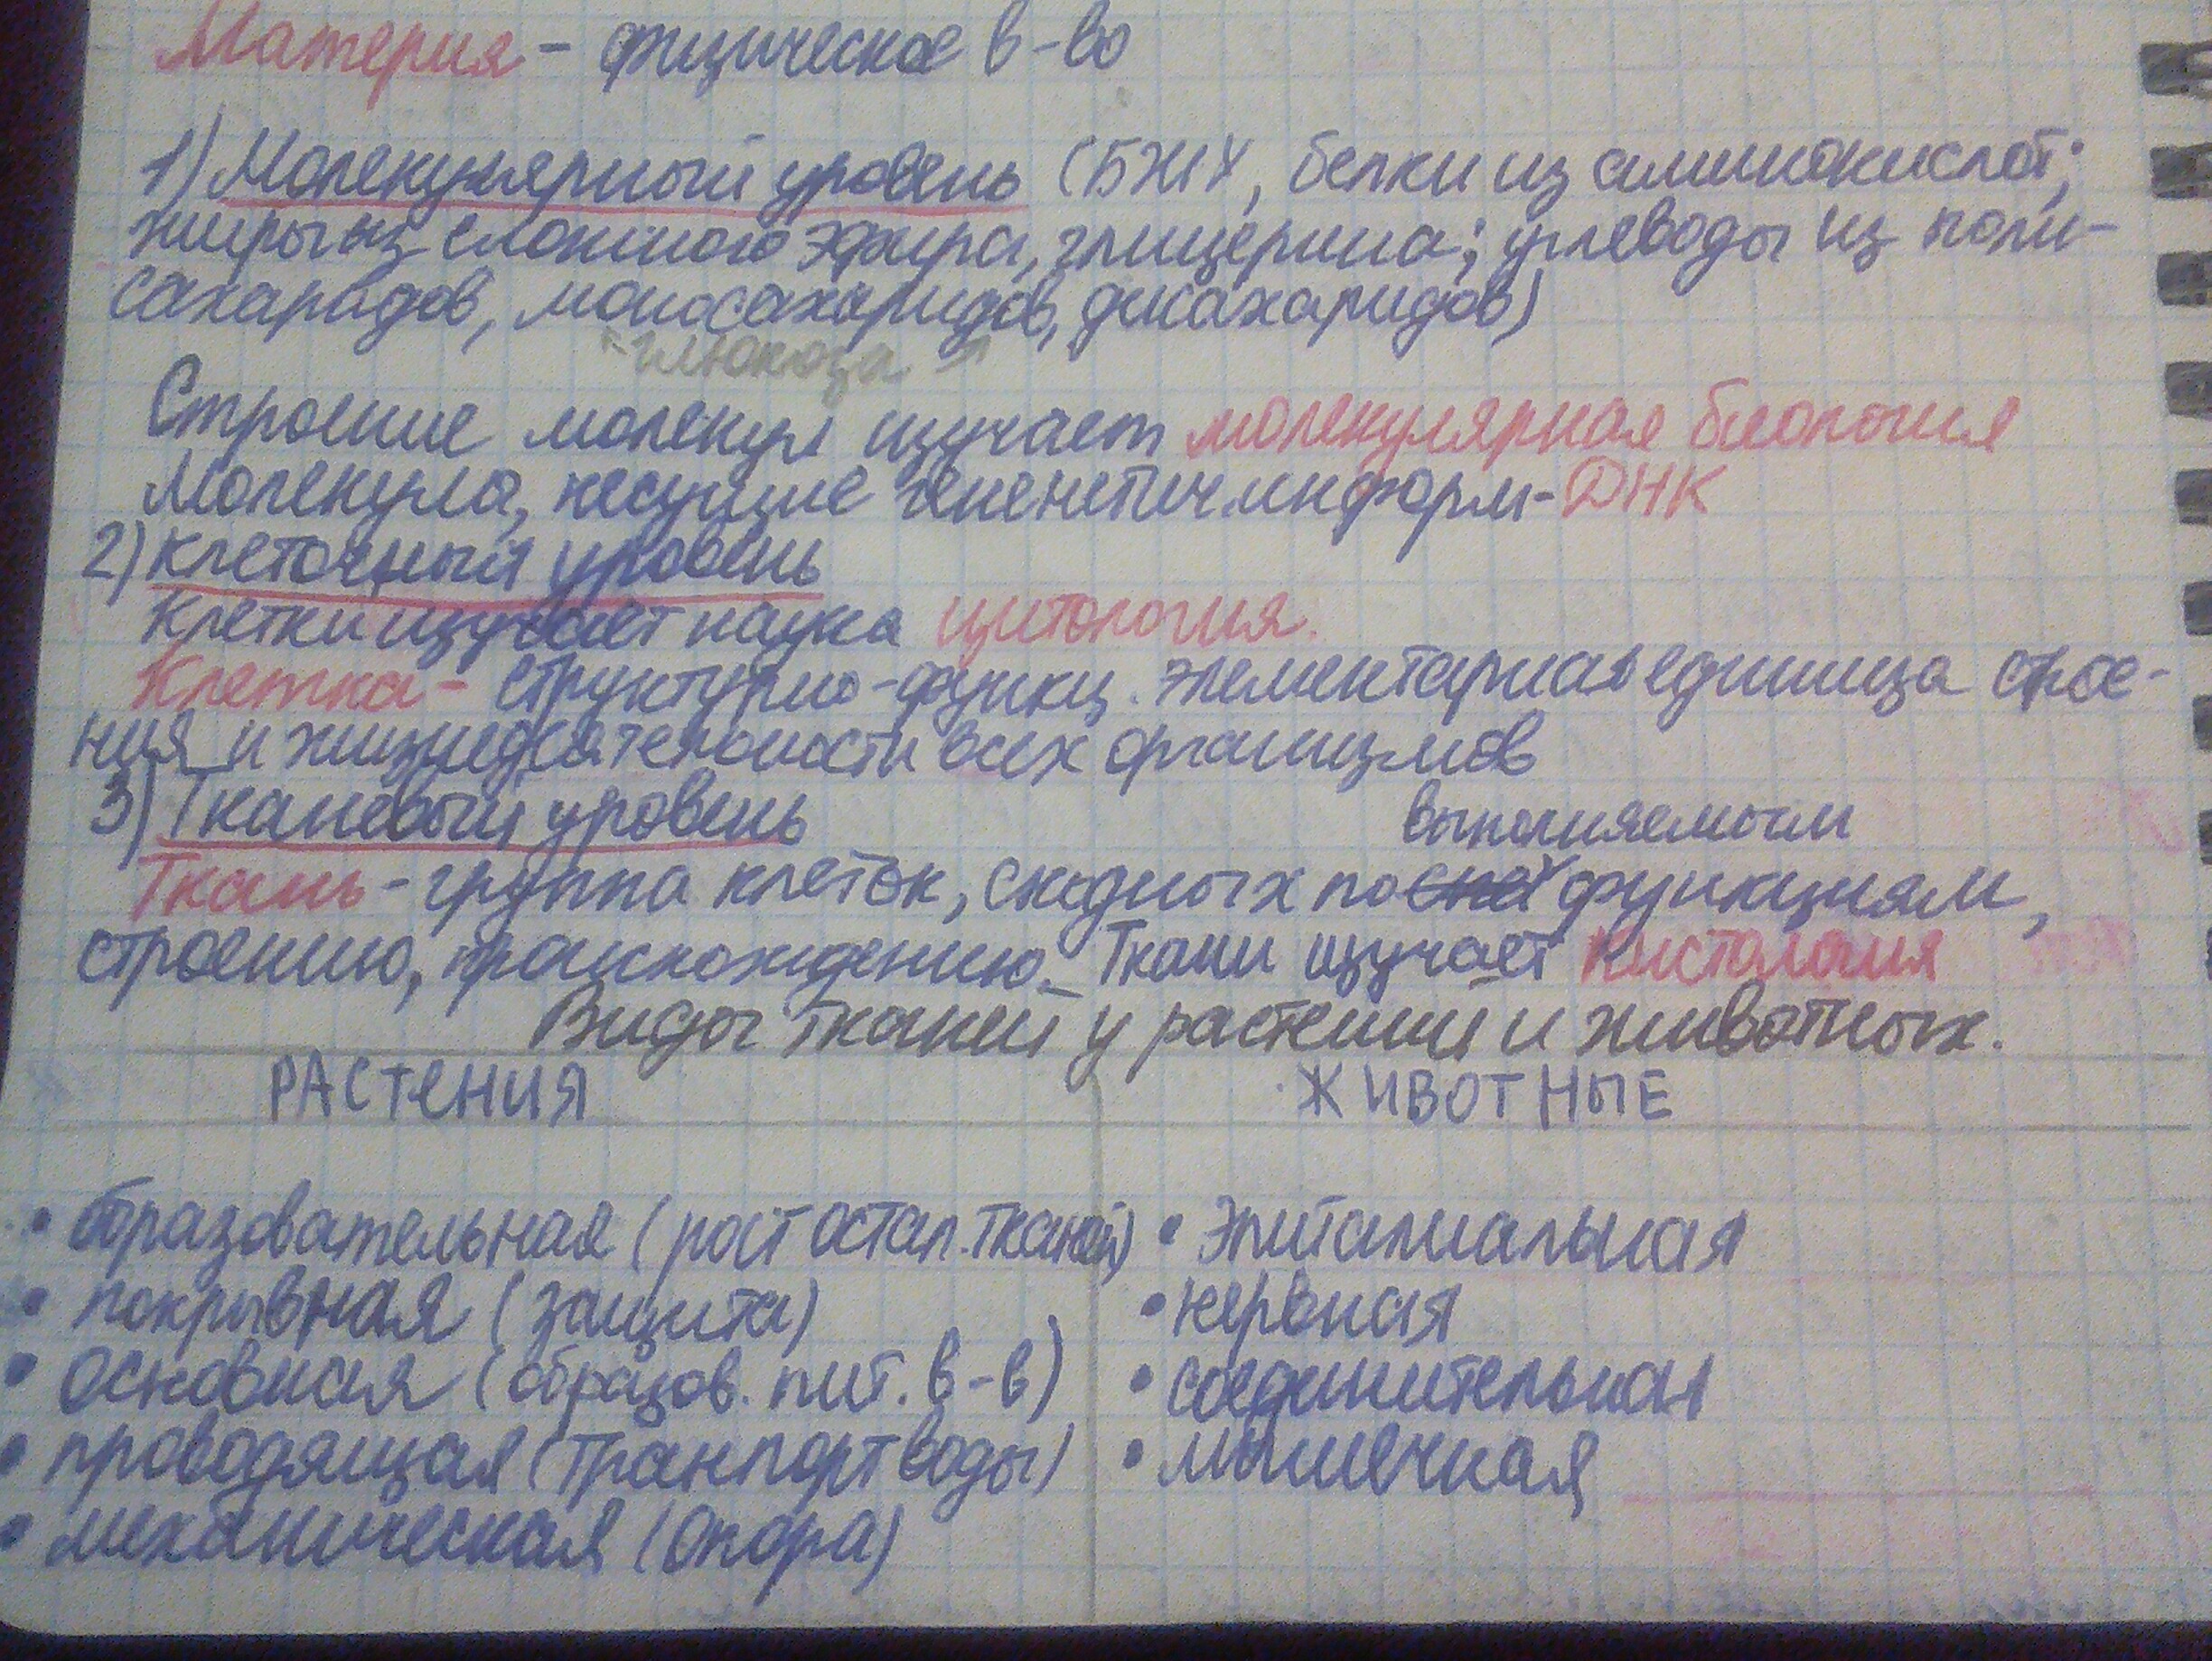 Материя - физическое в-во
1) Молекулярный уровень (БЖУ, белки из аминокислот;
жиры из сложного эфира, глицерина; углеводы из поли-
сахаридов, моносахаридов, дисахаридов)
глюкоза
Строение молекул изучает молекулярная биология
Молекула, несущие гененетич.информ-ДНК
2) Клеточный уровень
Клетки изучает наука цитология.
Клетка - структурно-функц. элементарная единица строе-
ния и жизнедеятельности всех организмов
3) Тканевый уровень
выполняемым
Ткань - группа клеток, сходных по функциям,
строению, происхождению. Ткани изучает гистология
Виды тканей у растений и животных.
РАСТЕНИЯ ЖИВОТНЫЕ
• образовательная (рост остал. тканей) • эпиталиальная
• покрывная (защита) • нервная
• основная (образов. пит. в-в) • соединительная
• проводящая (транпорт воды) • мышечная
• механическая (опора)